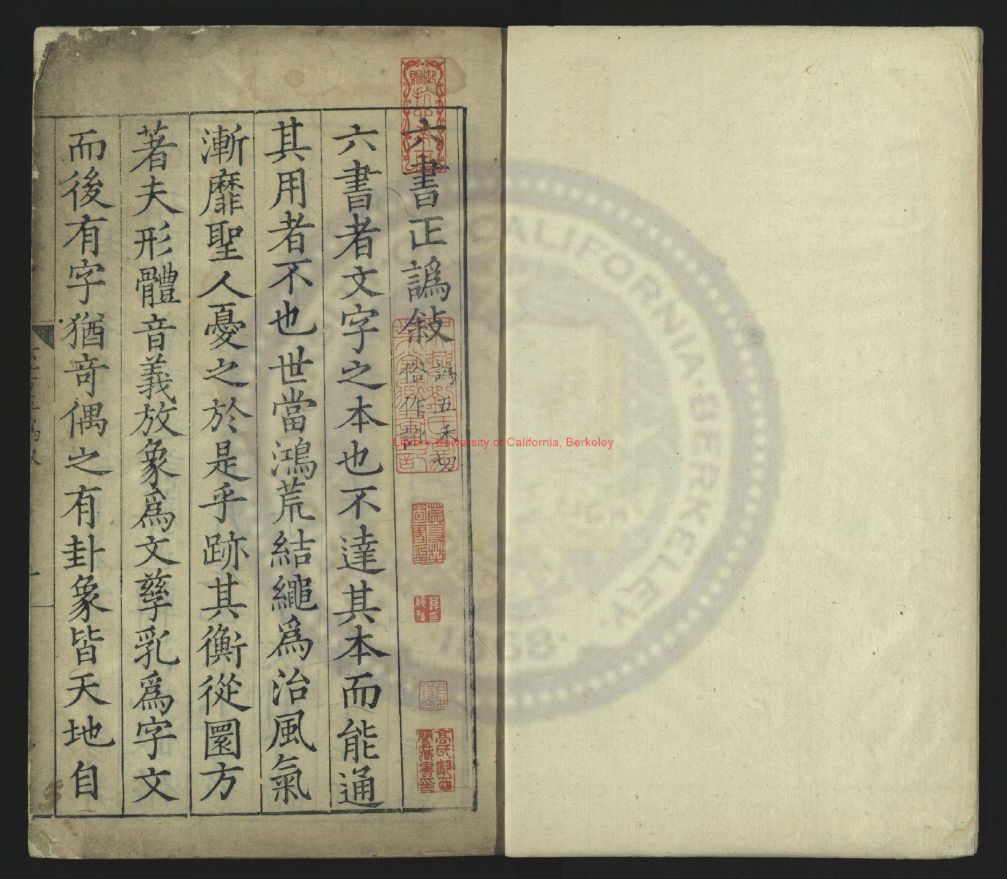 六書正譌敍
譌五禾切
俗作訛
六書者文字之本也不達其本而能通
其用者不也世當鴻荒結繩爲治風氣
漸靡聖人憂之於是乎跡其衡從圜方
著夫形體音義放象爲文孳乳爲字文
而後有字猶竒偶之有卦象皆天地自
Library, University of California, Berkeley
CALIFORNIA BERKELEY
1868